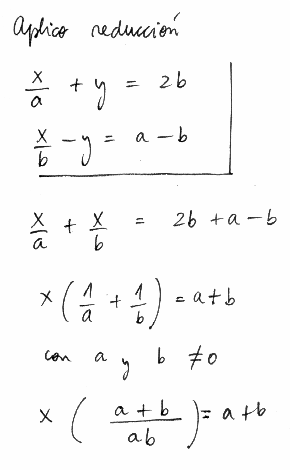 Aplico reducción
x/a + y = 2b
x/b - y = a - b
x/a + x/b = 2b + a - b
x (1/a + 1/b) = a + b
con a y b ≠ 0
x ( (a + b)/ab ) = a + b